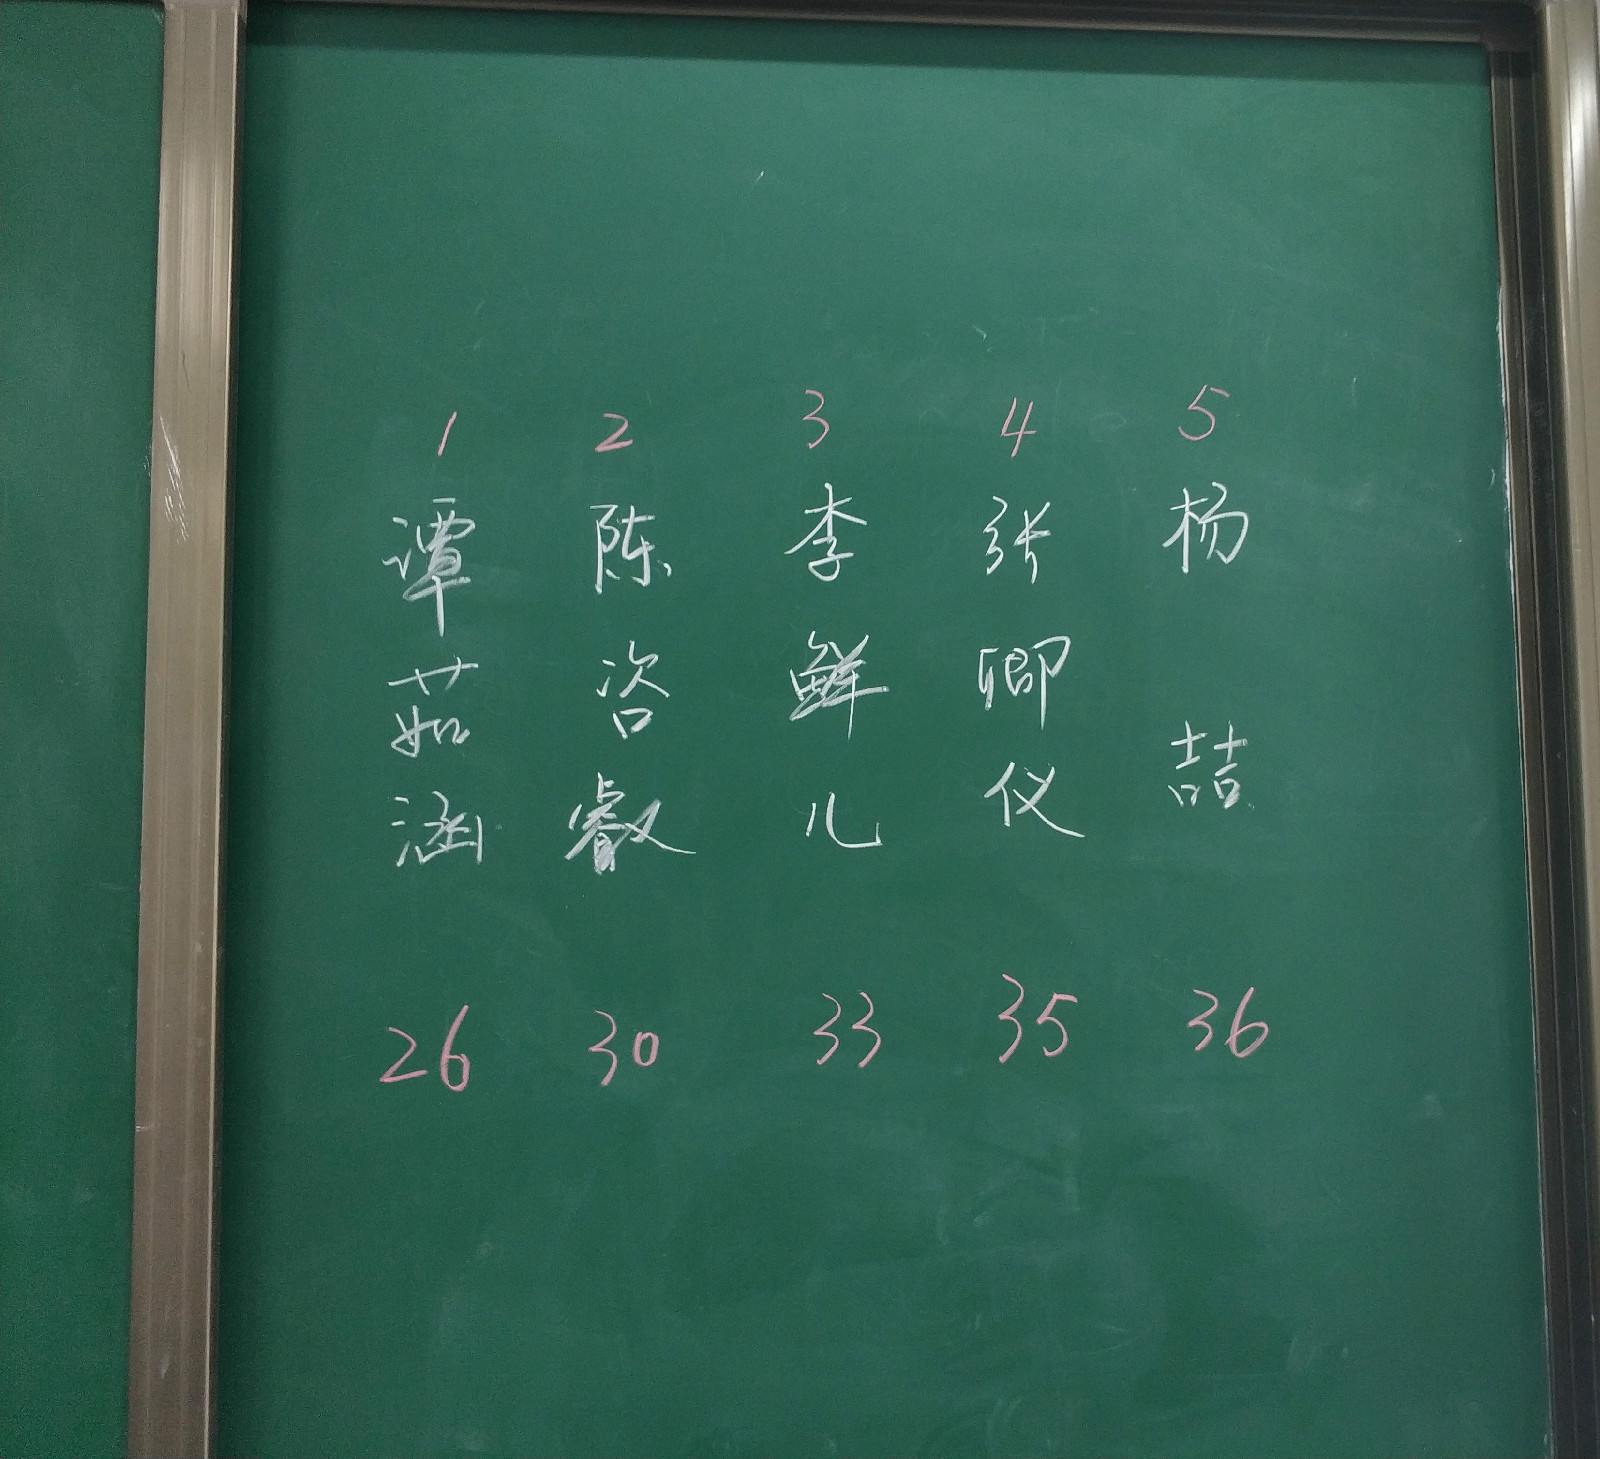 1 2 3 4 5
谭茹涵
陈咨睿
李鲜儿
张卿仪
杨喆
26 30 33 35 36